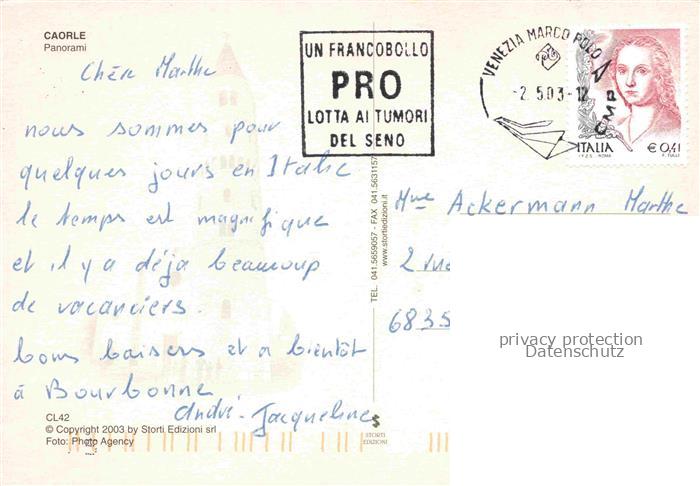 CAORLE
Panorami
Chère Marthe
nous sommes pour
quelques jours en Italie
le temps est magnifique
et il y a déja beaucoup
de vacanciers.
bons baisers et a bientôt
à Bourbonne
André - Jacqueline
CL42
© Copyright 2003 by Storti Edizioni srl
Foto: Photo Agency
UN FRANCOBOLLO
PRO
LOTTA AI TUMORI
DEL SENO
VENEZIA MARCO POLO
CMP
-2.5.03-12
ITALIA
€ 0,41
I.P.Z.S. ROMA
F. TULLI
TEL. 041.5659057 - FAX 041.5631157
www.stortiedizioni.it
STORTI
EDIZIONI
Mme Ackermann Marthe
2 rue
6835
privacy protection
Datenschutz